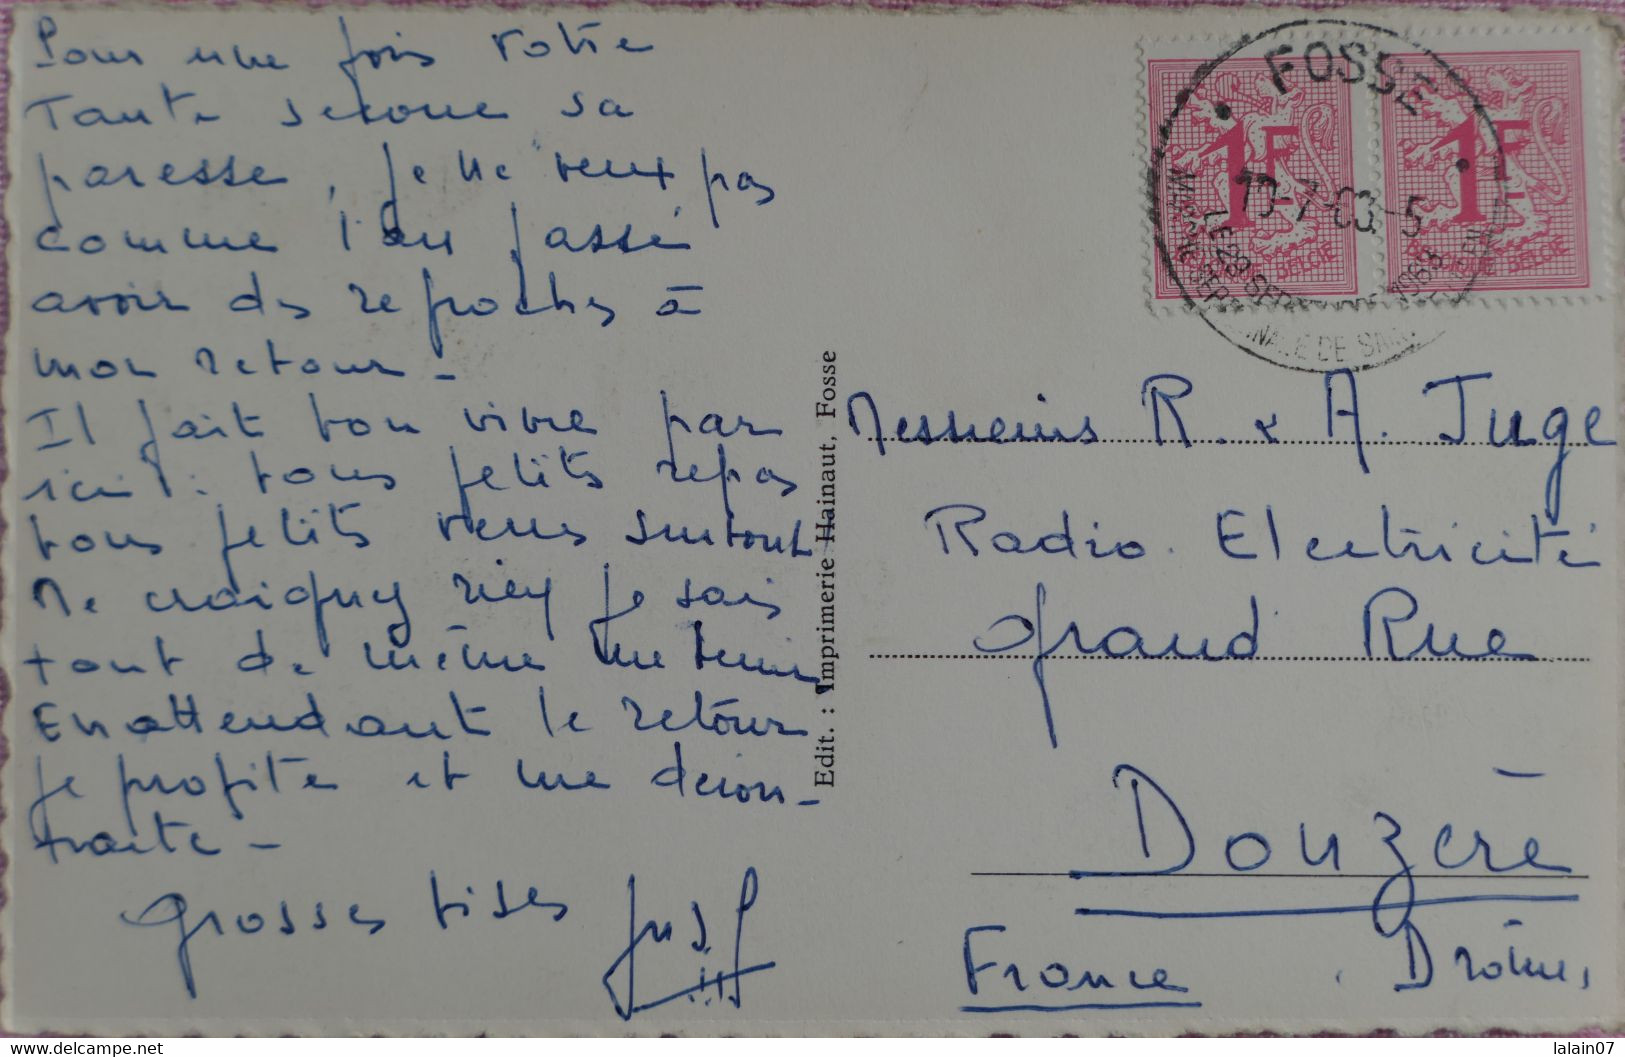 Pour une fois votre
Tante secoue sa
paresse, je ne veux pas
comme l'an passé
avoir des reproches à
mon retour -
Il fait bon vivre par
ici : bons petits repas
bons petits verres surtout
Ne craignez rien je sais
tout de même me tenir
En attendant le retour
je profite et me décon-
tracte -
Grosses bises
Edit. : Imprimerie Hainaut, Fosse
FOSSE
10-7-63-5
1F 1F
BELGIE
BELGIQUE BELGIE
1963
Messieurs R. & A. Juge
Radio. Electricité
Grand Rue
Douzère
France . Drôme,
https://www.delcampe.net
lalain07